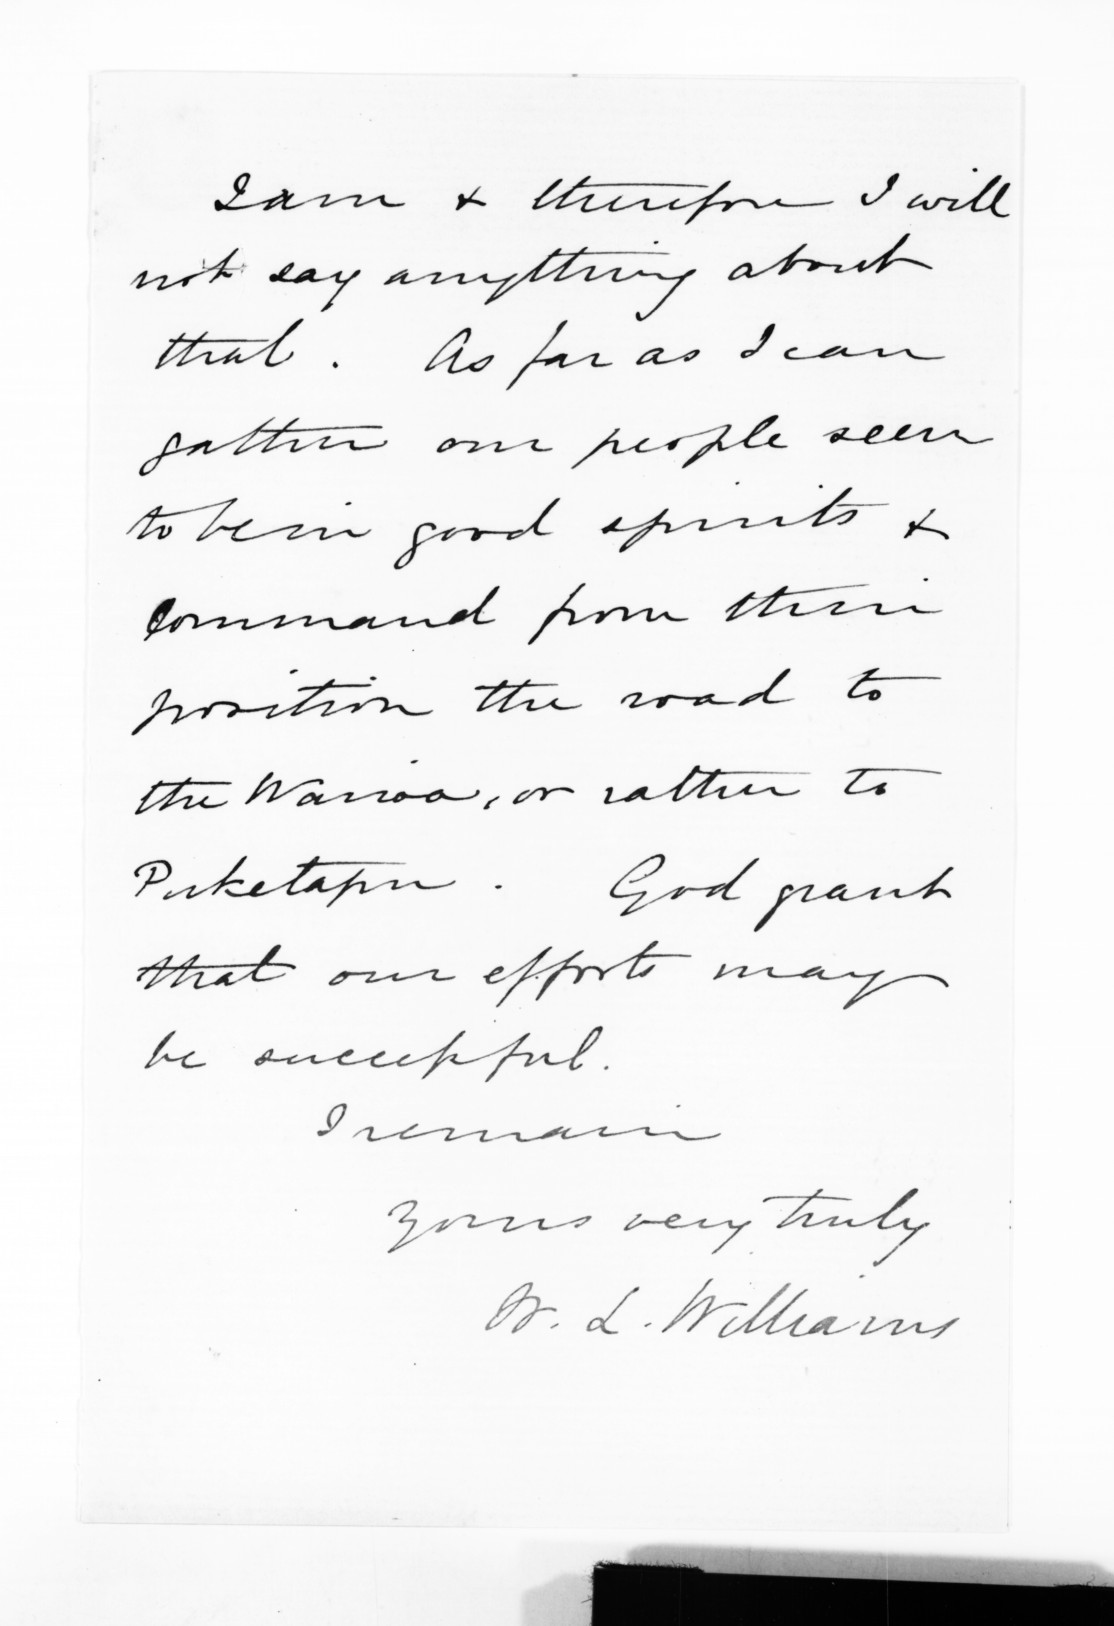 I am & therefore I will
not say anything about
that. As far as I can
gather our people seem
to be in good spirits &
command from their
position the road to
the Wairoa, or rather to
Puketapu. God grant
that our efforts may
be successful.
I remain
Yours very truly
W. L. Williams